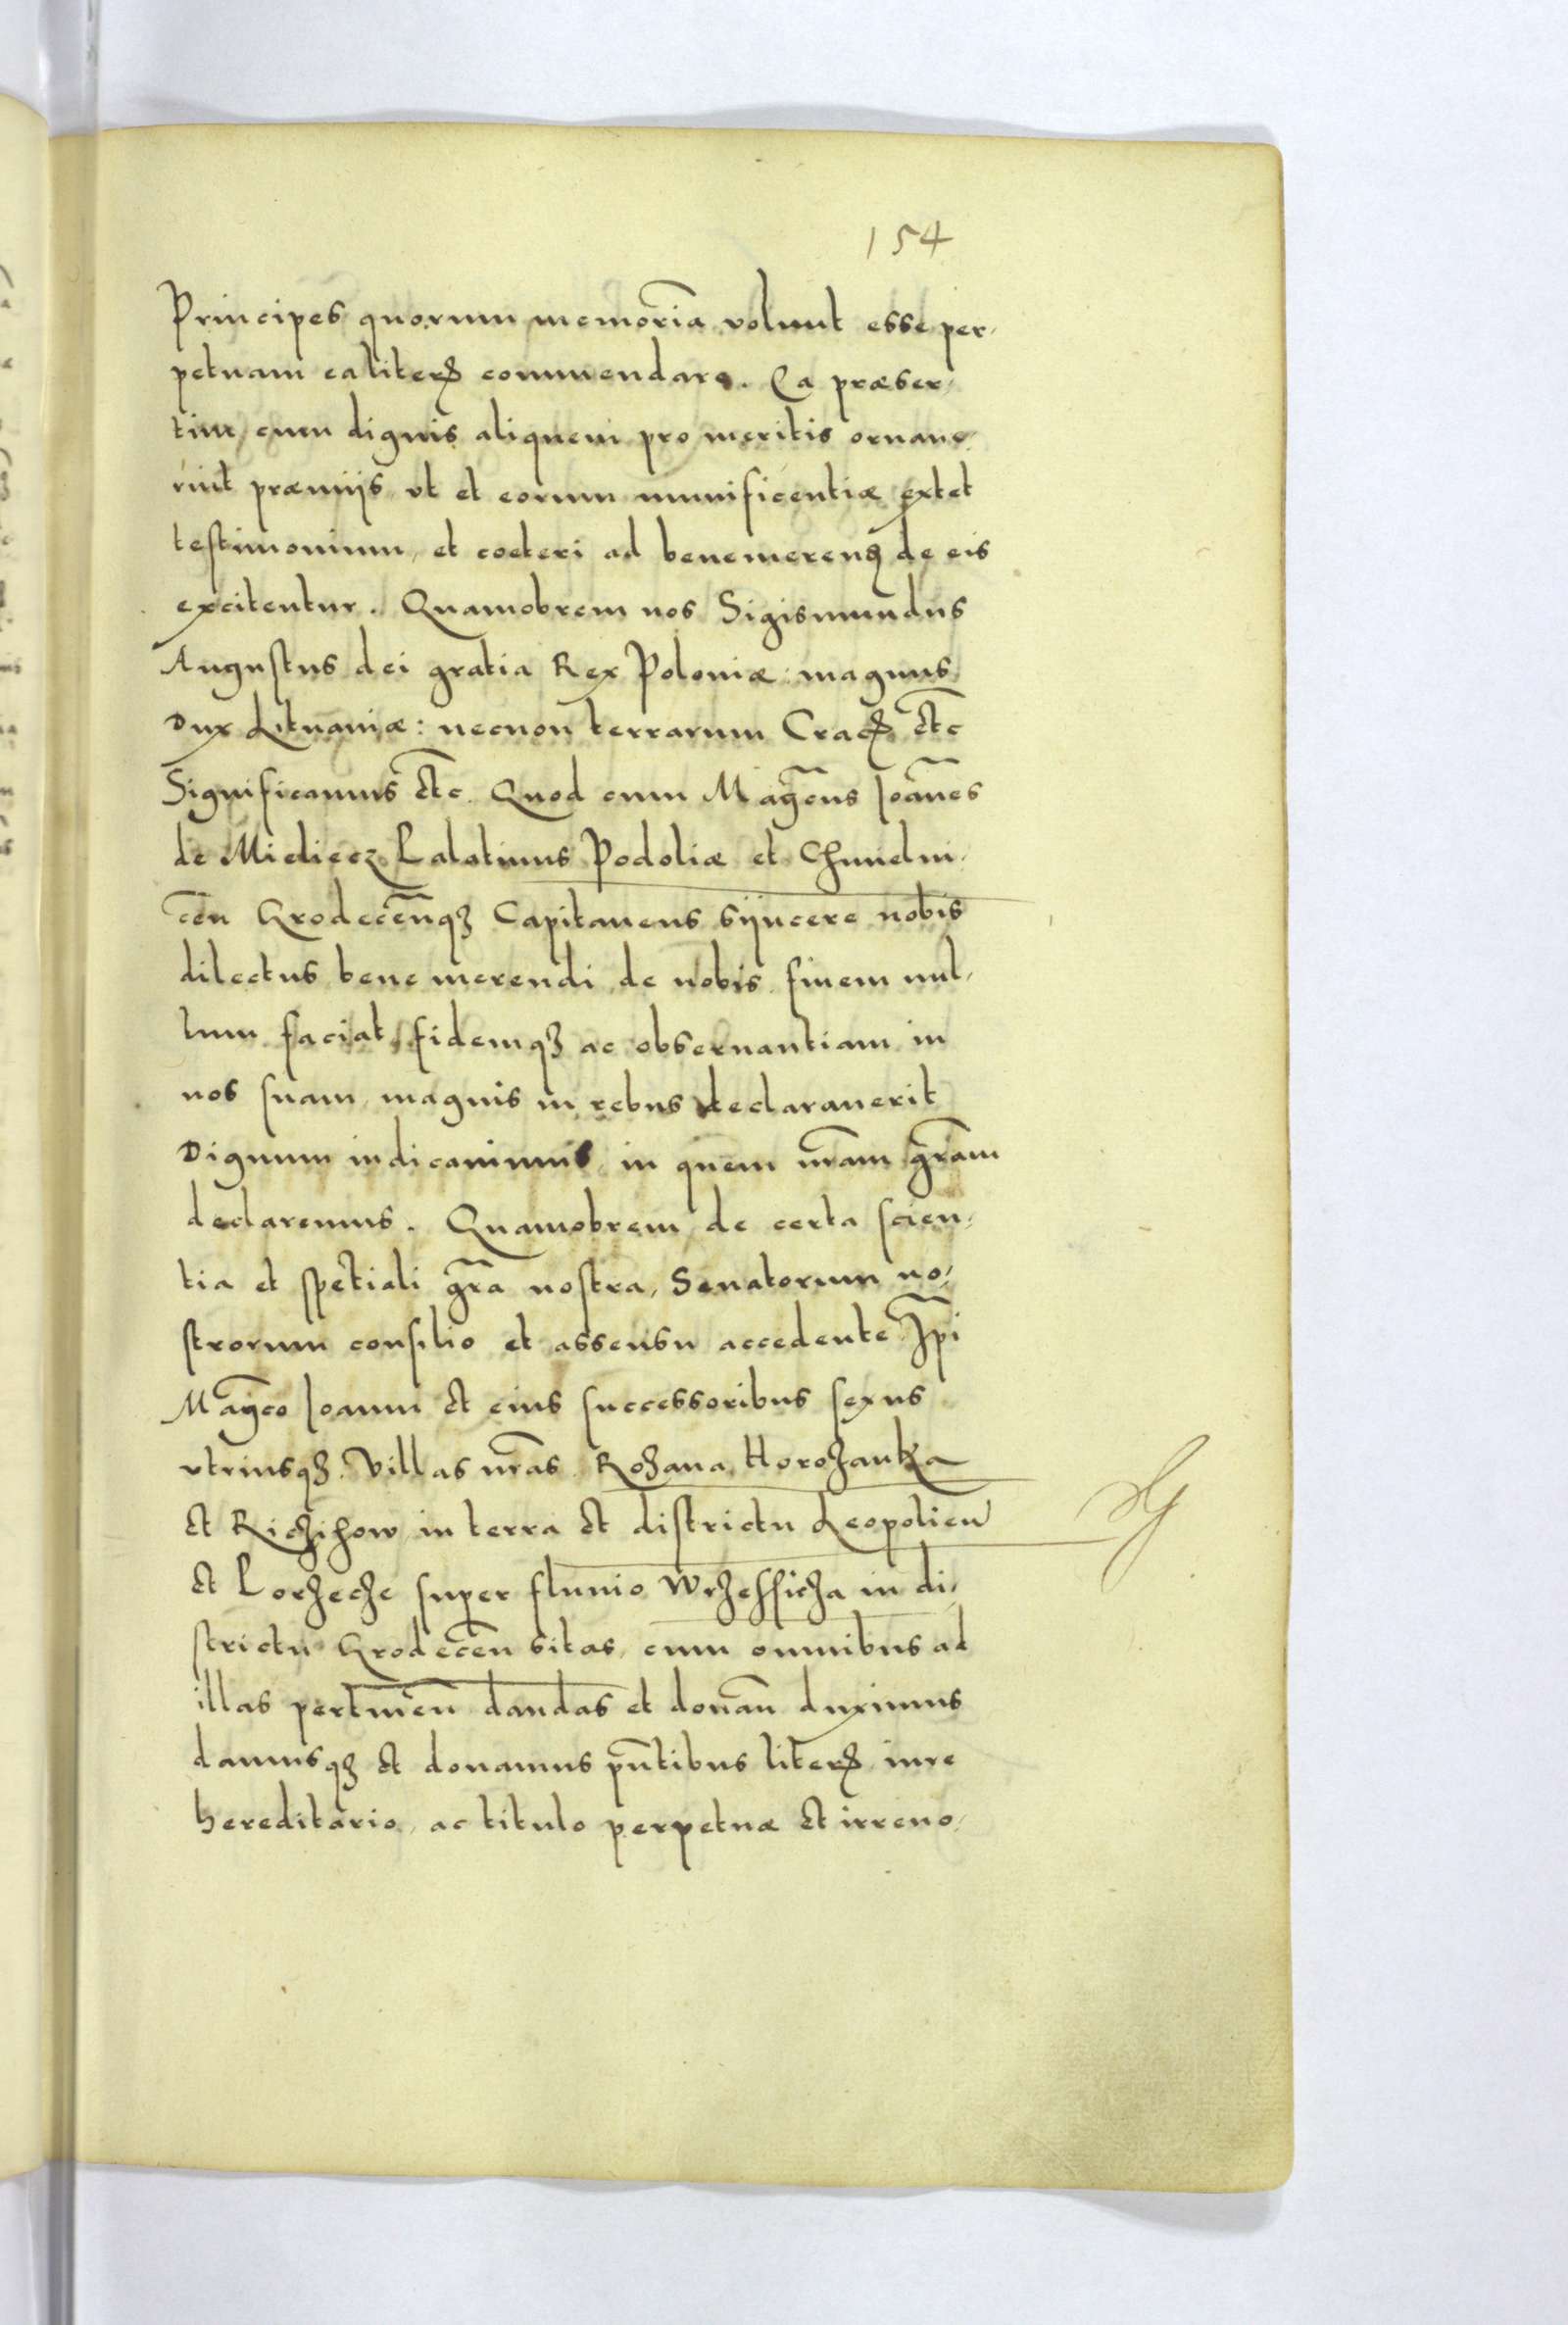 154
Principes quorum memoriã volunt esse per,
petuam ea literꝭ commendare. Ea præser,
tim, cum dignis aliquem pro meritis ornaue,
rint præmijs, vt et eorum munificentiæ extet
testimonium, et cœteri ad benemerenꝭ de eis
excitentur. Quamobrem nos Sigismundus
Augustus dei gratia Rex Poloniæ magnus
Dux Lituaniæ: necnon terrarum Cracꝭ etc̃
Significamus etc̃. Quod cum Magcũs Joãnes
de Mieliecz Palatinus Podoliæ et Chmelni,
cen̄ Grodecen̄qꝫ Capitaneus sijncere nobis
dilectus bene merendi de nobis finem nul,
lum faciat, fidemqꝫ ac obseruantiam in
nos suam, magnis in rebus declarauerit
Dignum iudicauimus, in quem nr̃am gr̃am
declaremus. Quamobrem de certa scien,
tia et spetiali gr̃a nostra, Senatorum no,
strorum consilio et assensu accedente Ip̃i
Mag̃co Joanni et eius successoribus sexus
vtriusqꝫ. Villas nr̃as. Rozana, Horozanka
et Richihow in terra et districtu Leopolien̄
et Porzecze super fluuio Wrzeszicza in di,
strictu Grodecen̄ sitas, cum omnibus ad
illas pertinen̄ dandas et donan̄ duximus
damusqꝫ et donamus pñtibus literꝭ iure
hereditario, ac titulo perpetuæ et irreuo,